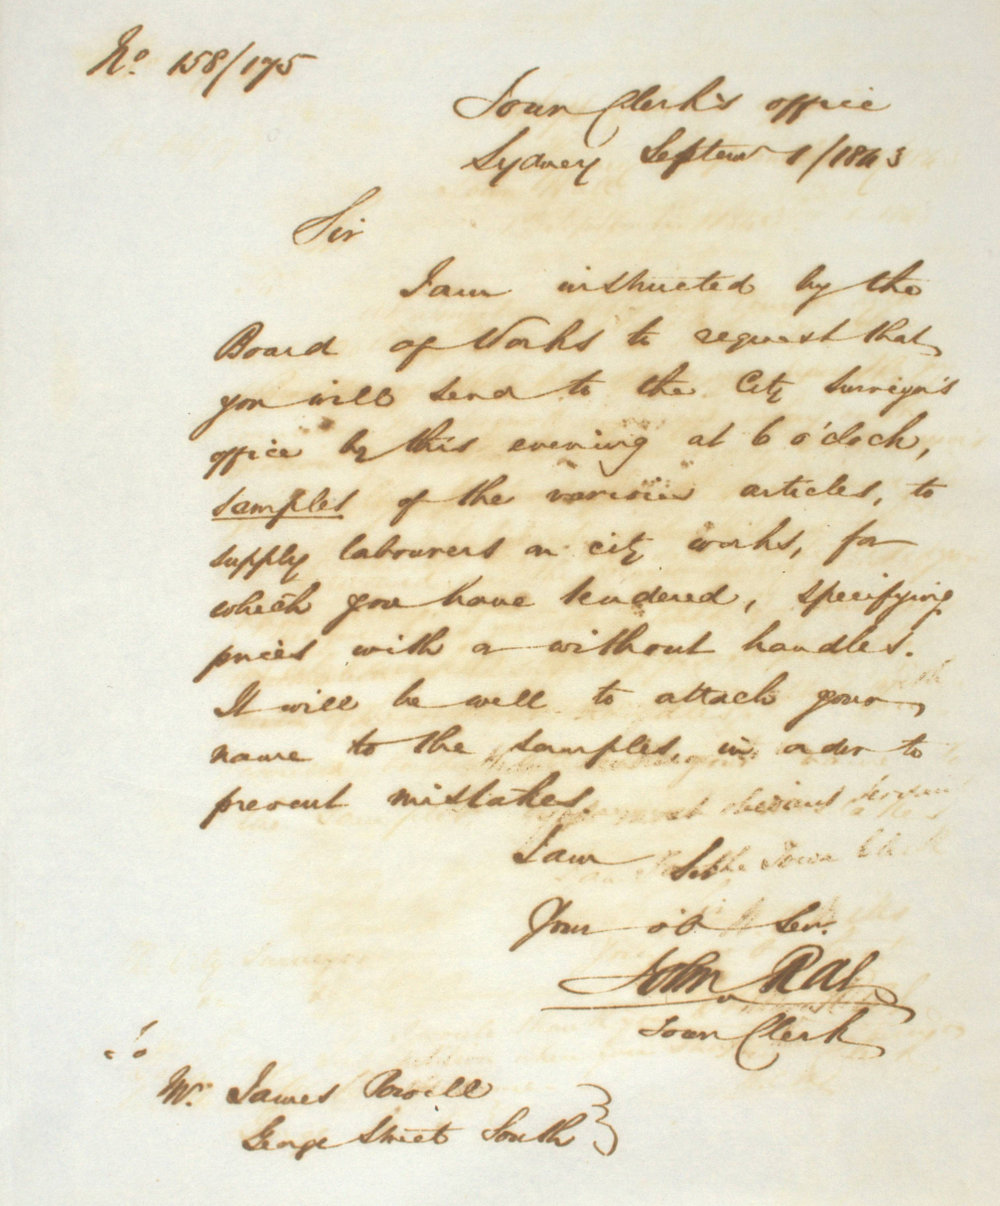 No. 158/175
Town Clerk's office
Sydney Septemr 1/1843
Sir
I am instructed by the
Board of Works to request that
you will send to the City Surveyor's
office by this evening at 6 o'clock,
samples of the various articles, to
supply labourers on city works, for
which you have tendered, specifying
prices with or without handles.
It will be well to attach your
name to the samples, in order to
prevent mistakes.
I am Sir
Your ob Ser.
John Rae
Town Clerk
To
Mr. James Powell
George Street South